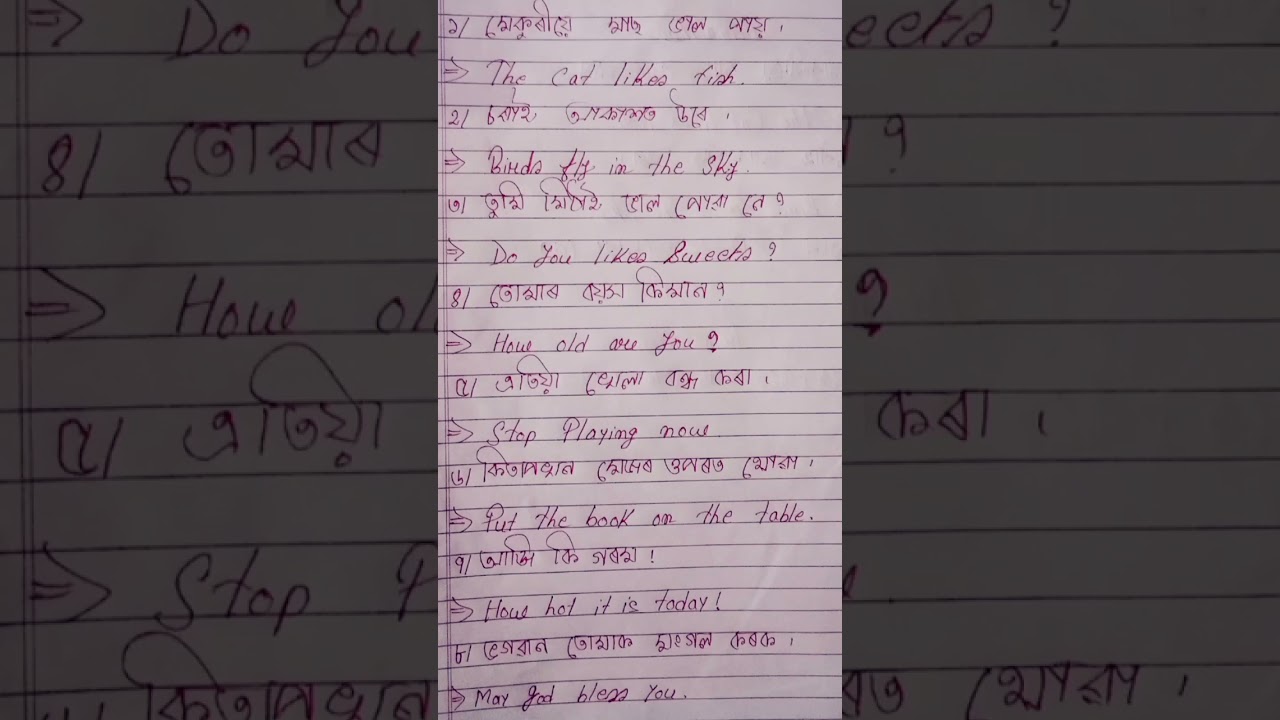 ১/ মেকুৰীয়ে মাছ ভাল পায়।
⇒ The Cat likes fish.
২/ চৰাই আকাশত উৰে।
⇒ Birds fly in the Sky.
৩/ তুমি মিঠাই ভাল পোৱা নে?
⇒ Do You likes Sweets?
৪/ তোমাৰ বয়স কিমান?
⇒ How old are You?
৫/ এতিয়া খেলা বন্ধ কৰা।
⇒ Stop Playing now
৬/ কিতাপখন মেজৰ ওপৰত থোৱা।
⇒ Put the book on the table.
৭/ আজি কি গৰম!
⇒ How hot it is today!
৮/ ভগৱান তোমাক মংগল কৰক।
⇒ May god bless You.